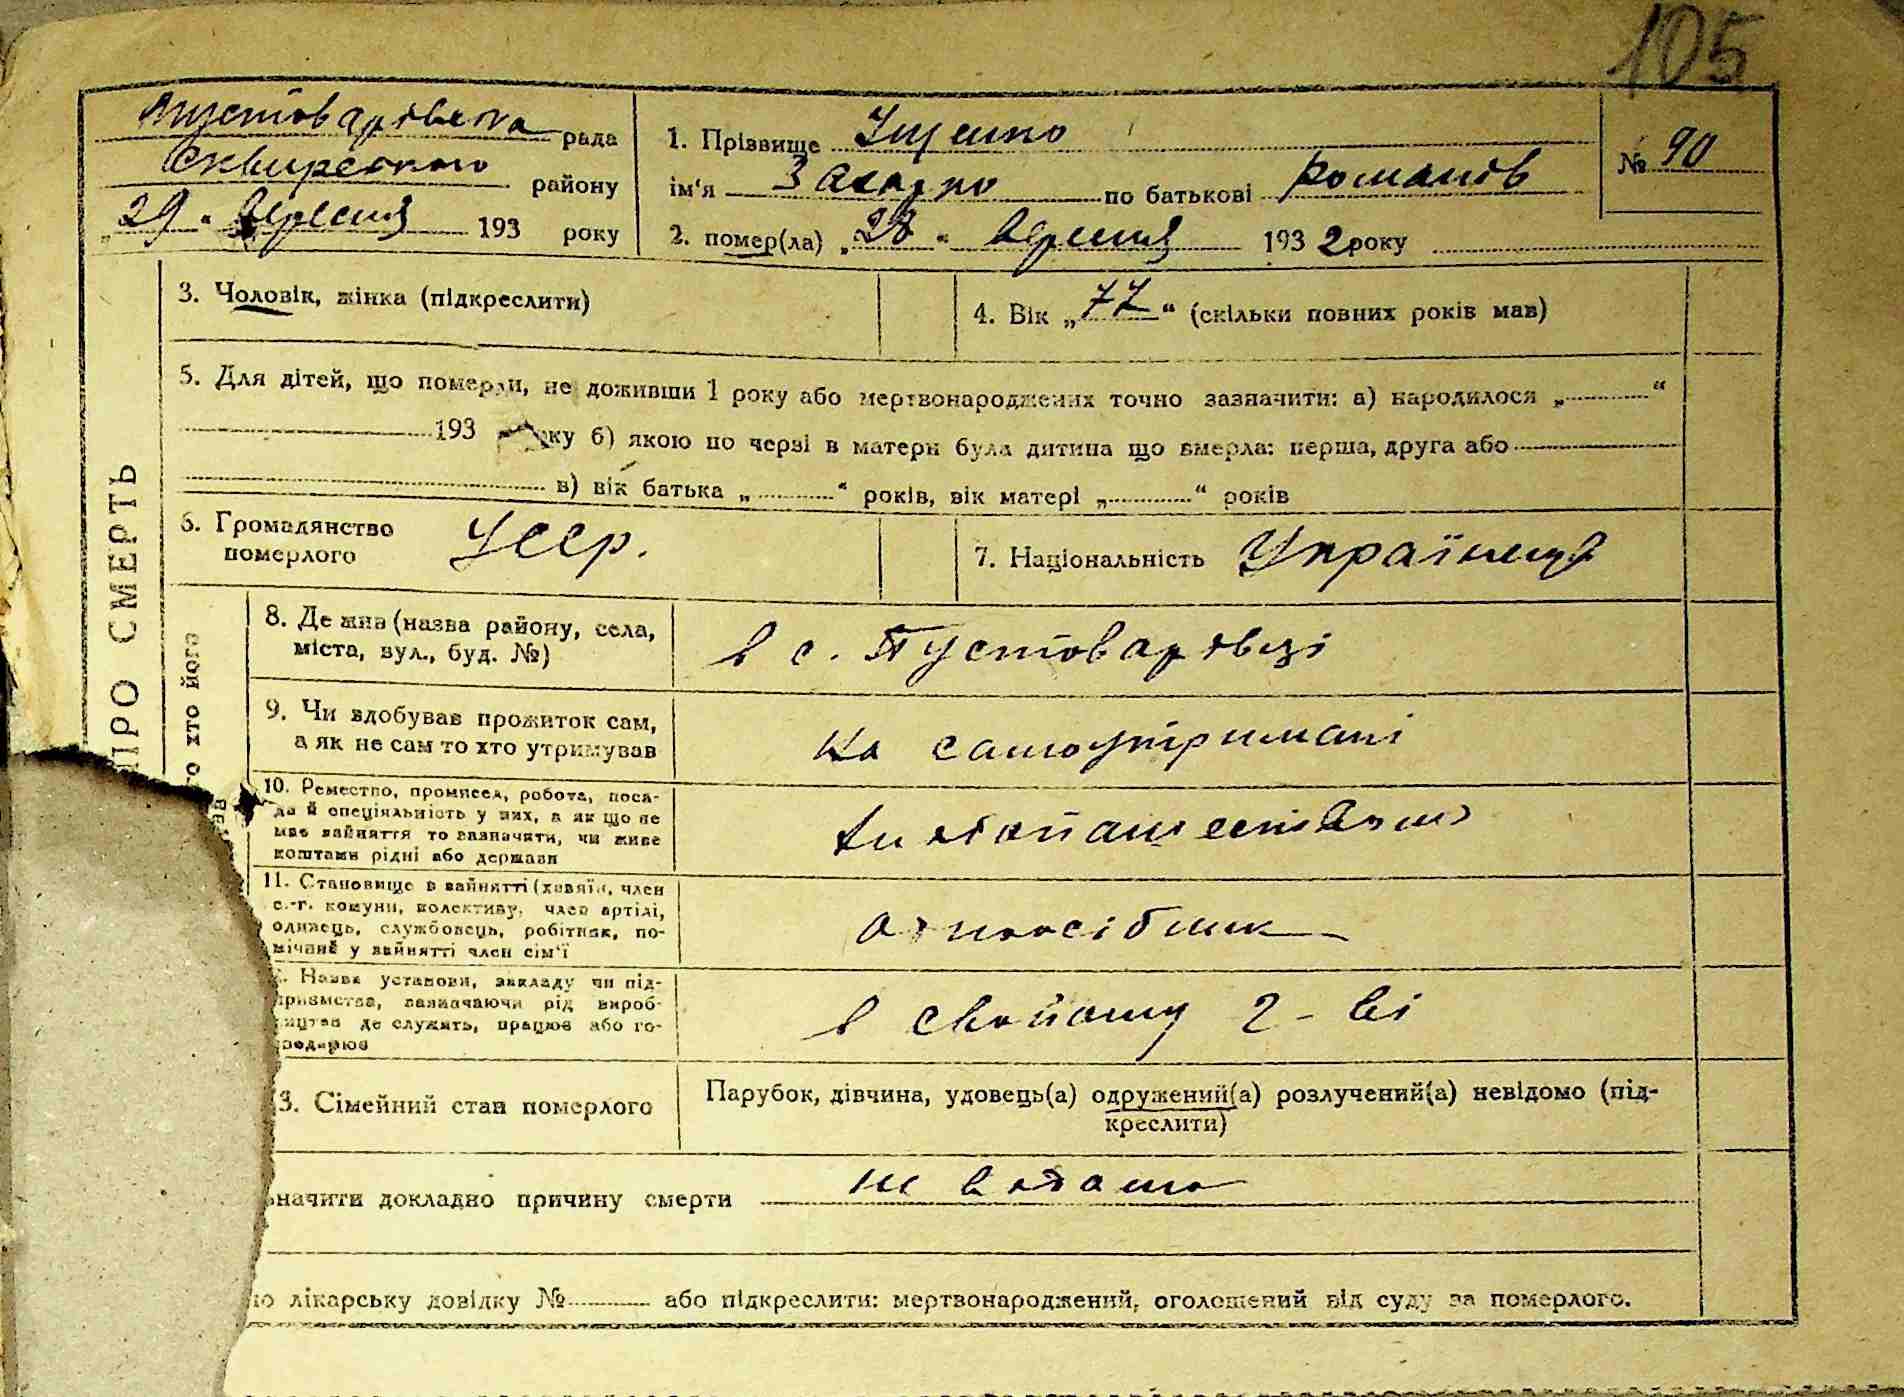 105
Пустоварівська рада
Сквирського району
„29“ вересня 193 року
1. Прізвище Іщенко
ім'я Захарко по батькові Романів
2. помер(ла) „28“ вересня 1932 року
№ 90
3. Чоловік, жінка (підкреслити)
4. Вік „77“ (скільки повних років мав)
5. Для дітей, що померли, не доживши 1 року або мертвонароджених точно зазначити: а) народилося „ “
193 року б) якою по черзі в матери була дитина що вмерла: перша, друга або
в) вік батька „ “ років, вік матері „ “ років
6. Громадянство
померлого
Усср.
7. Національність Українец
8. Де жив (назва району, села,
міста, вул., буд. №)
в с. Пустоварівці
9. Чи здобував прожиток сам,
а як не сам то хто утримував
на самоутримані
10. Ремество, промисел, робота, поса-
да й специяльність у них, а як що не
мав зайняття то зазначити, чи живе
коштами рідні або держави
11. Становище в зайнятті (хазяїн, член
с.-г. комуни, колективу, член артілі,
одинець, службовець, робітник, по-
мічний у зайнятті член сім'ї
одноосібник
Назва установи, закладу чи під-
приємства, зазначаючи рід вироб-
ництва де служить, працює або го-
сподарює
в свойому г-ві
3. Сімейний стан померлого
Парубок, дівчина, удовець(а) одружений(а) розлучений(а) невідомо (під-
креслити)
значити докладно причину смерти не відомо
лікарську довідку № або підкреслити: мертвонароджений, оголошений від суду за померлого.
ПРО СМЕРТЬ
хто його